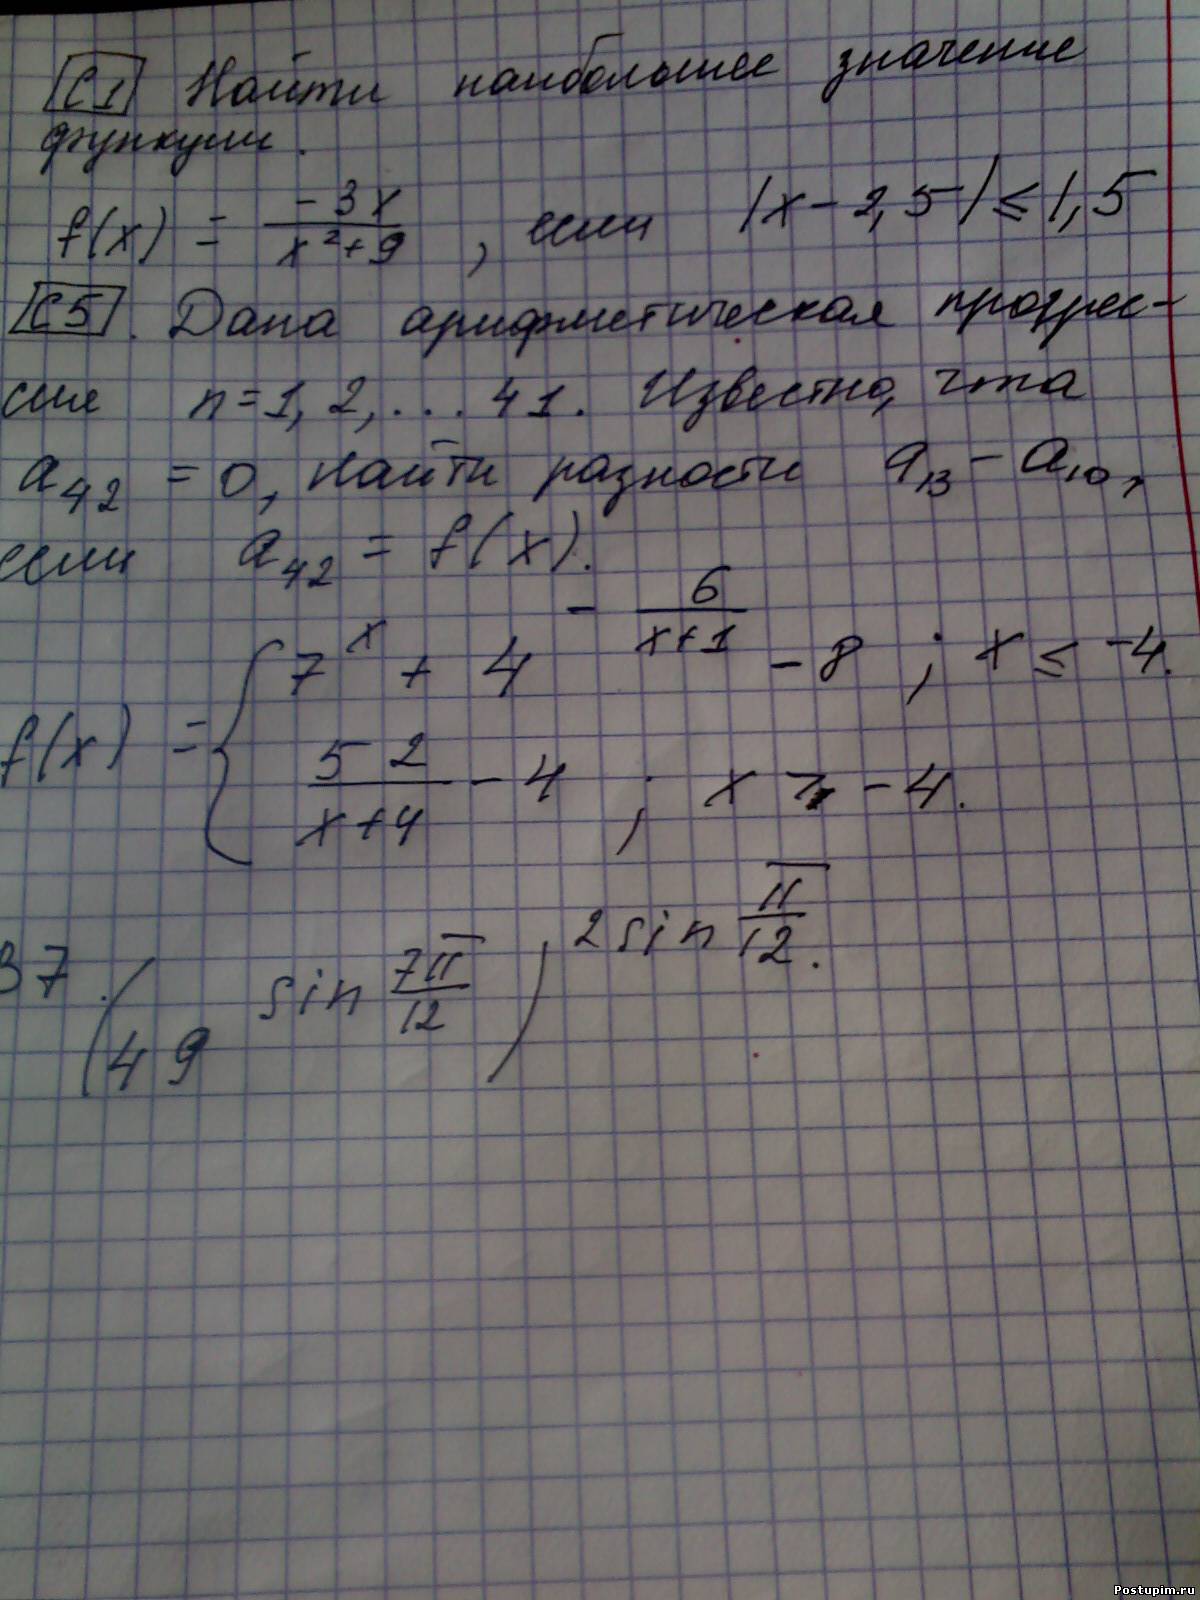 С1 Найти наибольшее значение
функции.
f(x) = -3x / x²+9 , если |x-2,5| ≤ 1,5
С5. Дана арифметическая прогрес-
сия n=1, 2, ... 41. Известно, что
a₄₂ = 0, найти разности a₁₃ - a₁₀,
если a₄₂ = f(x).
f(x) = { 7^x + 4^(- 6/(x+1)) - 8 ; x ≤ -4.
52/(x+4) - 4 ; x > -4.
В7. (49^(sin 7π/12))^(2 sin π/12).
Postupim.ru